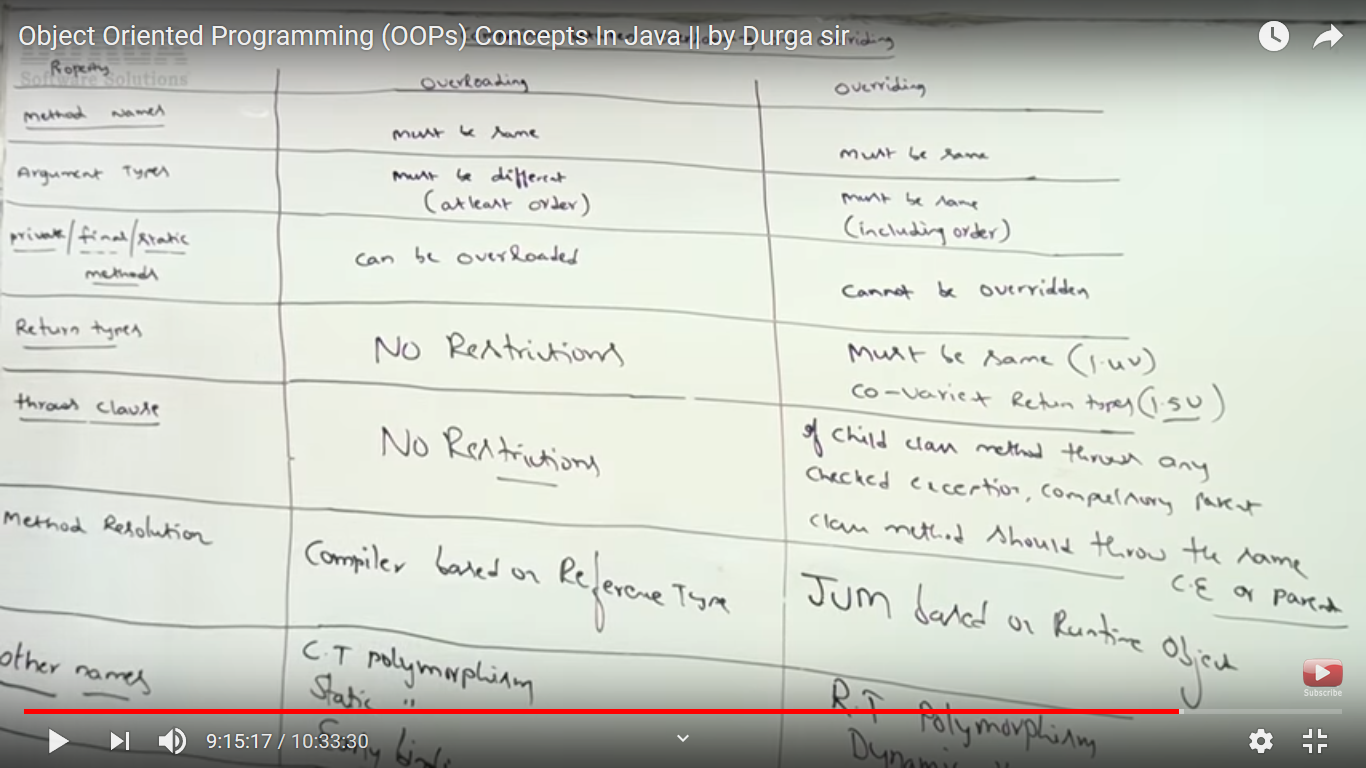 Object Oriented Programming (OOPs) Concepts In Java || by Durga sir
overriding
Software Solutions
Property
Overloading
Overriding
Method Names
must be same
must be same
Argument Types
must be different
(atleast order)
must be same
(including order)
private/final/static
methods
can be overloaded
cannot be overridden
Return types
No Restrictions
Must be same (1.4V)
co-varient Return types (1.5V)
throws clause
No Restrictions
If child class method throws any
checked exception, compulsory parent
class method should throw the same
C.E or parent
Method Resolution
Compiler based on Reference Type
JVM based on Runtime Object
other names
C.T polymorphism
Static "
R.T Polymorphism
Dynamic "
Subscribe
9:15:17 / 10:33:30